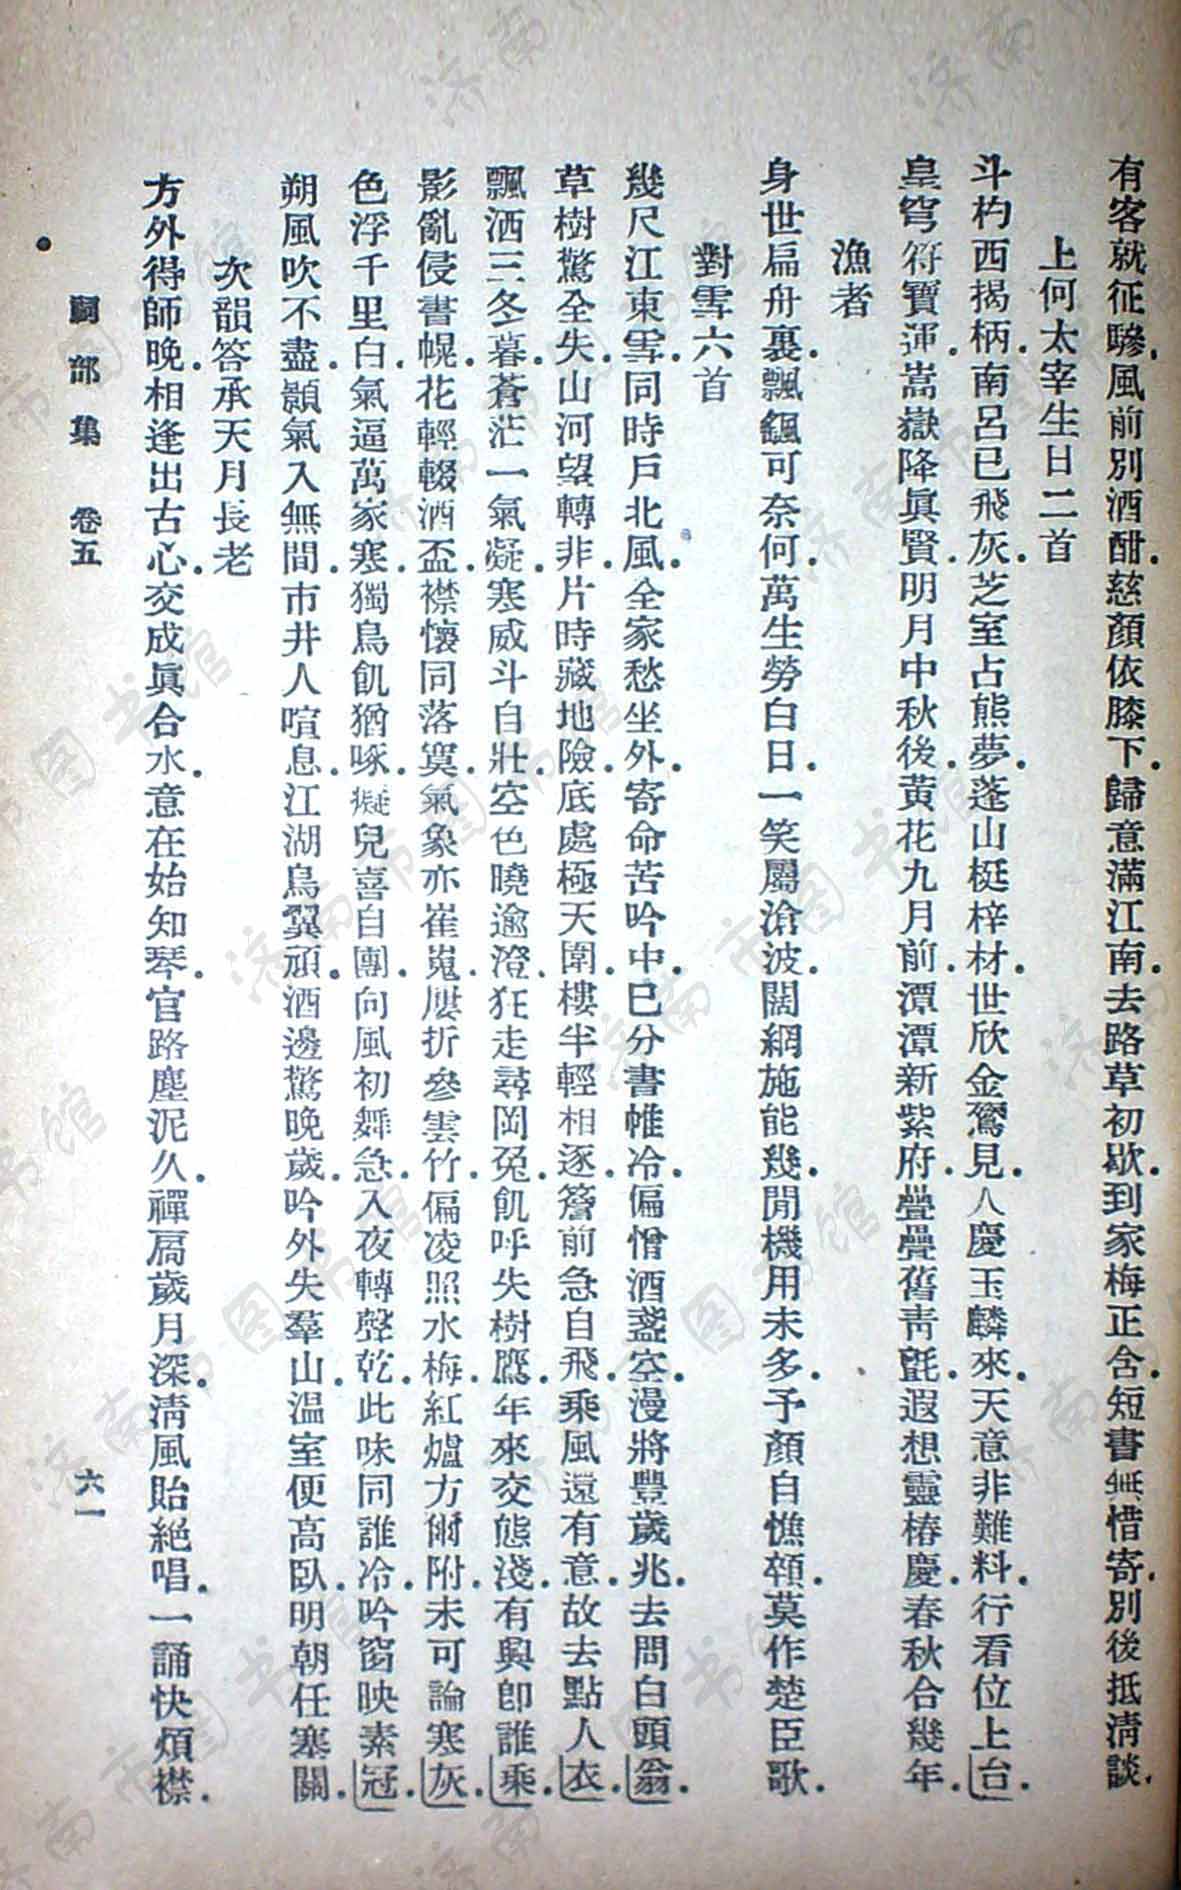 有客就征驂風前別酒酣慈顏依膝下歸意滿江南去路草初歇到家梅正含短書無惜寄別後抵淸談
上何太宰生日二首
斗杓西揭柄南呂已飛灰芝室占熊夢蓬山梃梓材世欣金鶱見人慶玉麟來天意非難料行看位上台
皇穹符寶運嵩嶽降眞賢明月中秋後黃花九月前潭潭新紫府疊疊舊靑氈遐想靈椿慶春秋合幾年
漁者
身世扁舟裏飄飄可奈何萬生勞白日一笑屬滄波闊網施能幾閒機用未多予顏自憔顇莫作楚臣歌
對雪六首
幾尺江東雪同時戶北風全家愁坐外寄命苦吟中已分書帷冷偏憎酒盞空漫將豐歲兆去問白頭翁
草樹驚全失山河望轉非片時藏地險底處極天圍樓半輕相逐簷前急自飛乘風還有意故去點人衣
飄洒三冬暮蒼茫一氣凝寒威斗自壯空色曉逾澄狂走尋岡兔飢呼失樹鷹年來交態淺有興卽誰乘
影亂侵書幌花輕輟酒盃襟懷同落寞氣象亦崔嵬屢折參雲竹偏凌照水梅紅爐方爾附未可論寒灰
色浮千里白氣逼萬家寒獨鳥飢猶啄癡兒喜自團向風初舞急入夜轉聲乾此味同誰冷吟窗映素冠
朔風吹不盡顥氣入無間市井人喧息江湖鳥翼頑酒邊驚晚歲吟外失羣山溫室便高臥明朝任塞關
次韻答承天月長老
方外得師晚相逢出古心交成眞合水意在始知琴官路塵泥久禪扃歲月深淸風貽絕唱一誦快煩襟
嗣部集 卷五 六一
济南市图书馆